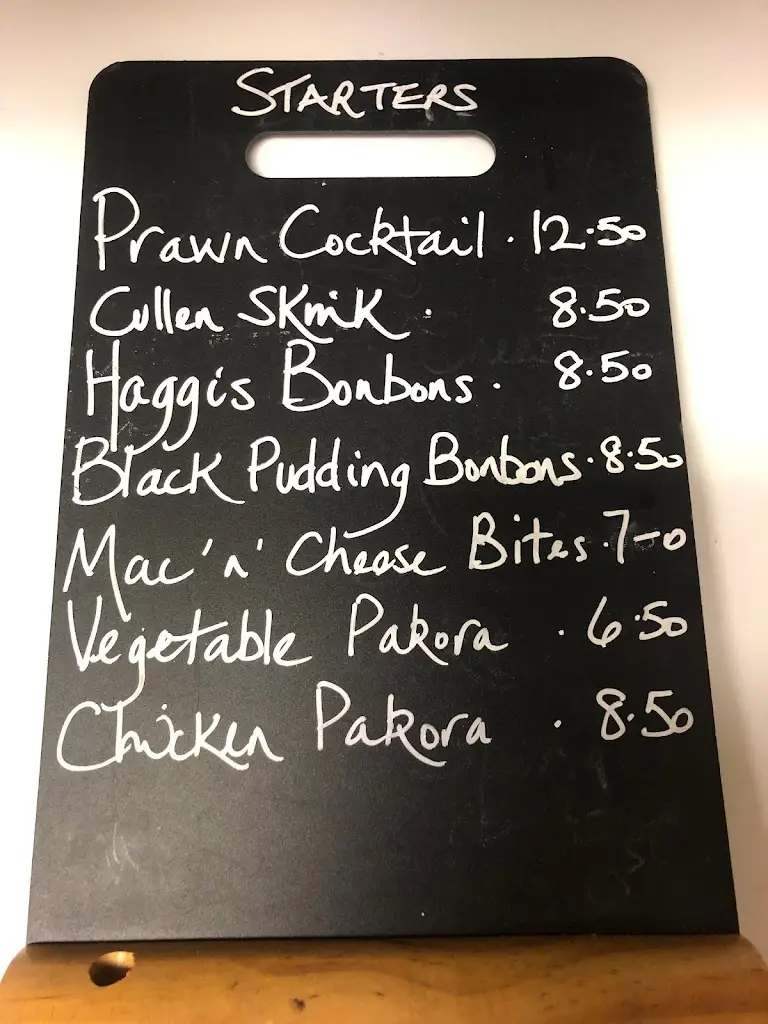 STARTERS
Prawn Cocktail . 12.50
Cullen Skink . 8.50
Haggis Bonbons . 8.50
Black Pudding Bonbons . 8.50
Mac 'n' Cheese Bites . 7-0
Vegetable Pakora . 6.50
Chicken Pakora . 8.50